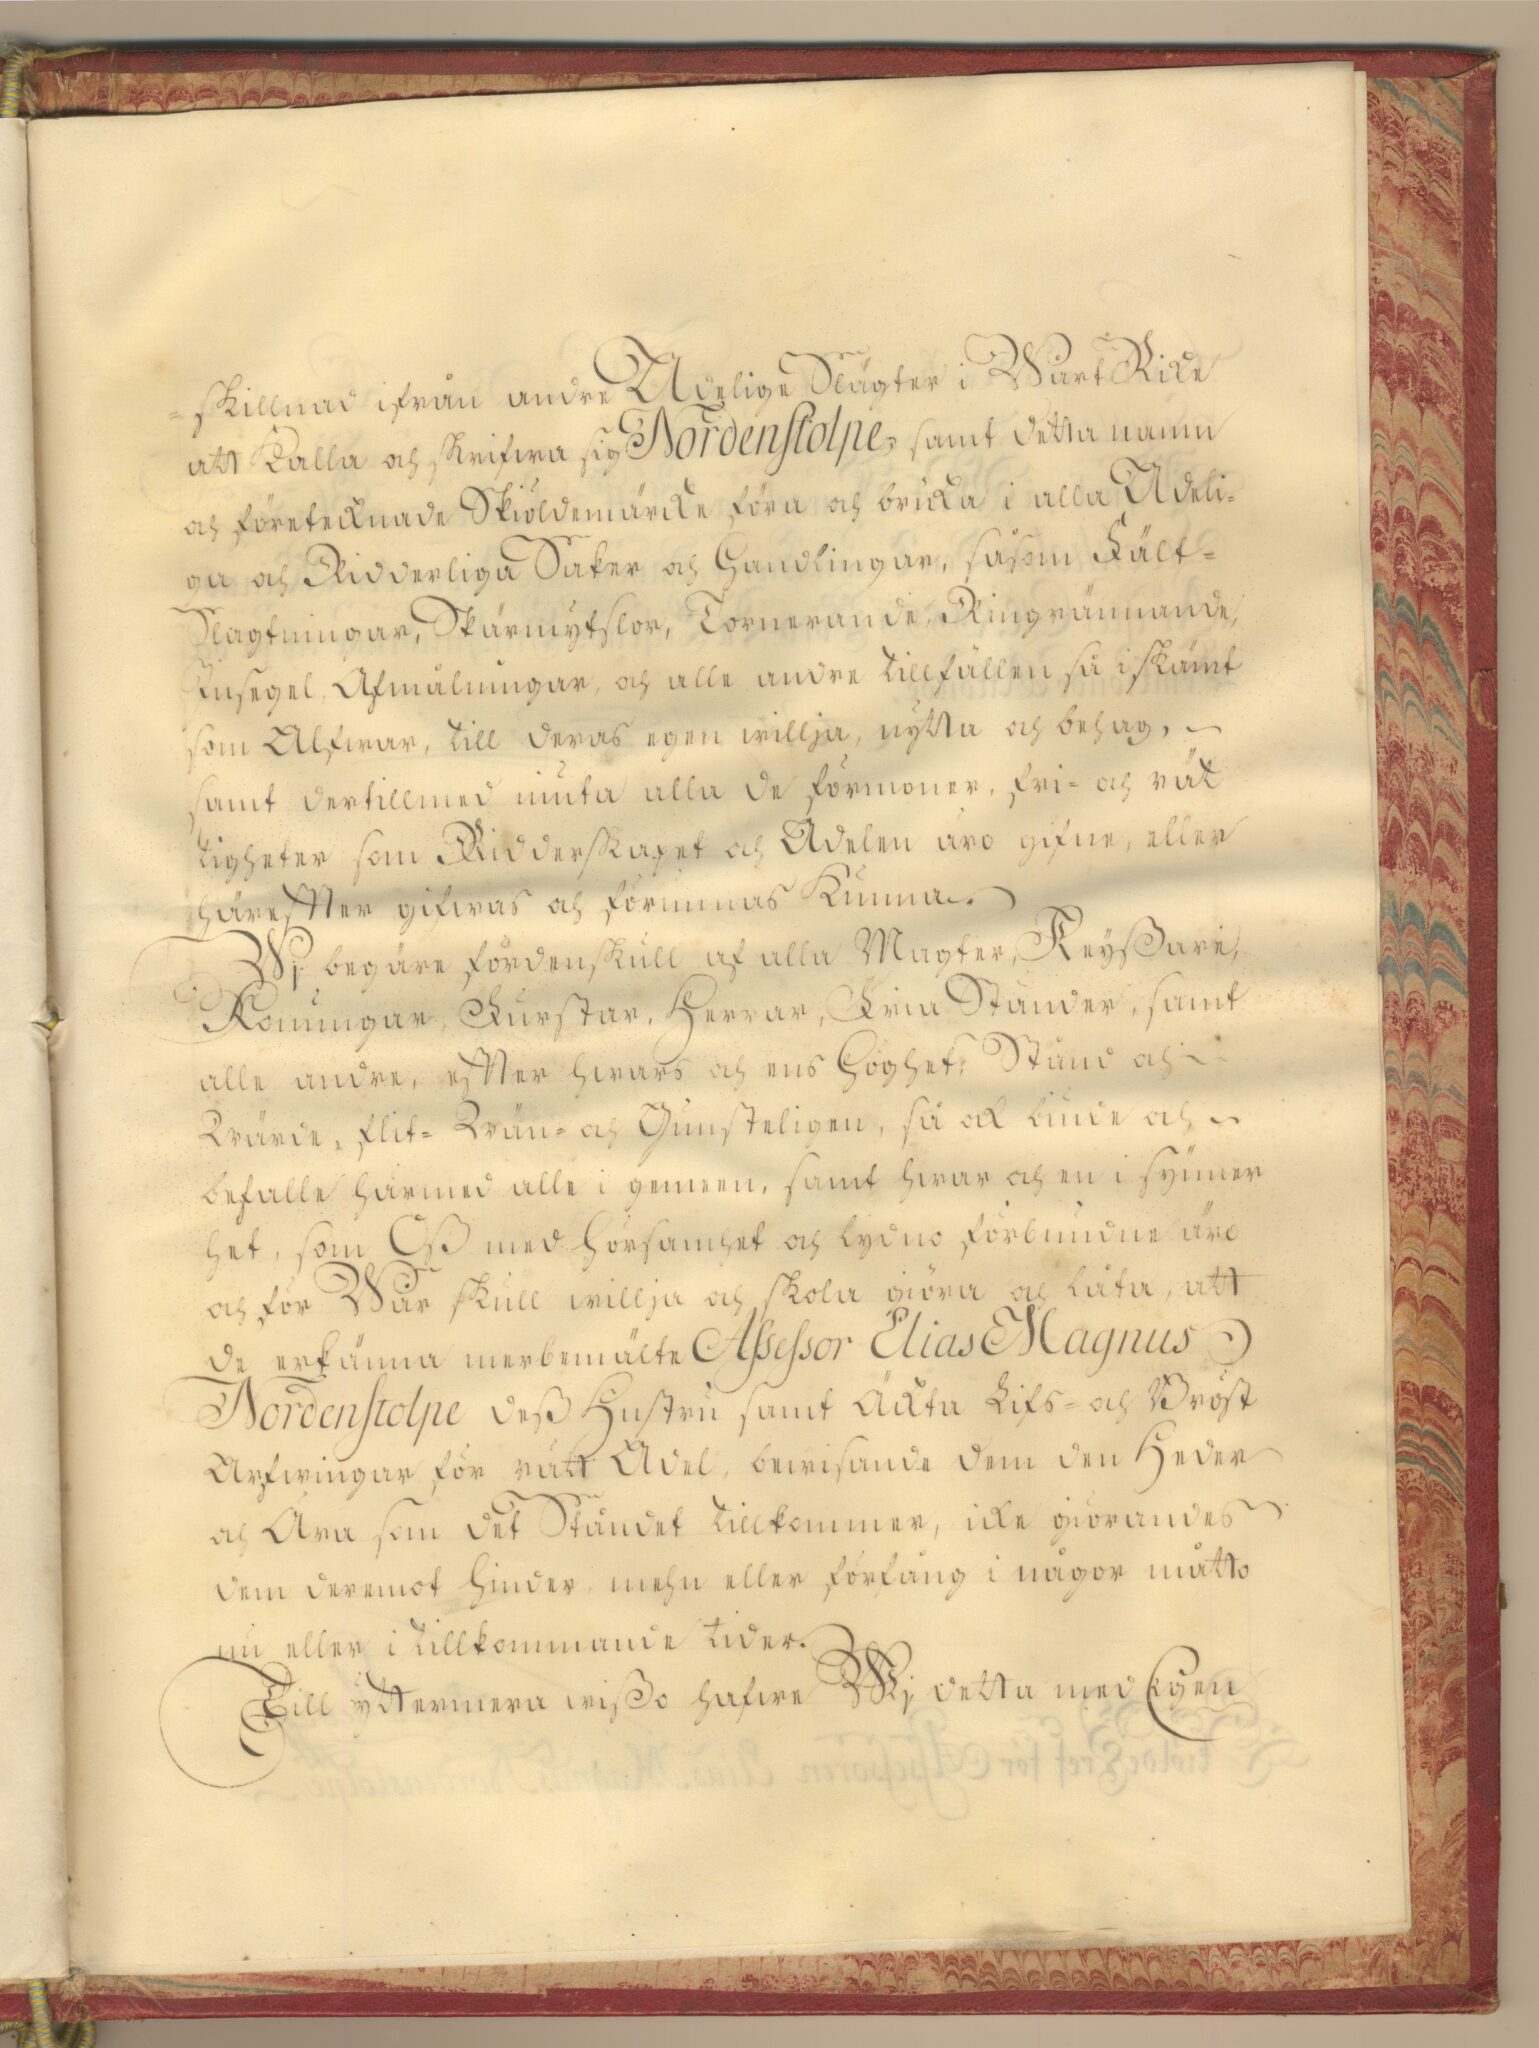 -skillnad ifrån andre Adelige Slägter i Wårt Rike
att kalla och skrifwa sig Nordenstolpe, samt detta namn
och företecknade Skiöldemärcke föra och bruka i alla Adeli-
ga och Ridderliga Saker och Handlingar, såsom Fält-
Slagtningar, Skärmytslor, Tornerande, Ringrännande,
Insegel, Afmålningar, och alle andre tillfällen så i skämt
som Alfwar, till deras egen willja, nytta och behag,
samt dertillmed niuta alla de förmoner, fri- och rät
tigheter som Ridderskapet och Adelen äro gifne, eller
härefter gifwas och förunnas kunna.
Wj begäre fördenskull af alla Magter, Keyßare,
Konungar, Furstar, Herrar, Fria Ständer, samt
alle andre, efter hwars och ens Höghet, Stånd och
Wärde, flit- Wän- och Gunsteligen, så ock biude och
befalle härmed alle i gemeen, samt hwar och en i synner
het, som Oß med hörsamhet och lydno förbundne äro
och för Wår skull willja och skola giöra och låta, att
de erkänna merbemälte Assessor Elias Magnus
Nordenstolpe deß Hustru samt Äckta Lifs- och Bröst
Arfwingar för rätt Adel, bewisande dem den Heder
och Ära som det Ståndet tillkommer, icke giörandes
dem deremot hinder, mehn eller förfång i någor måtto
nu eller i tillkommande tider.
Till yttermera wißo hafwe Wj detta med Egen